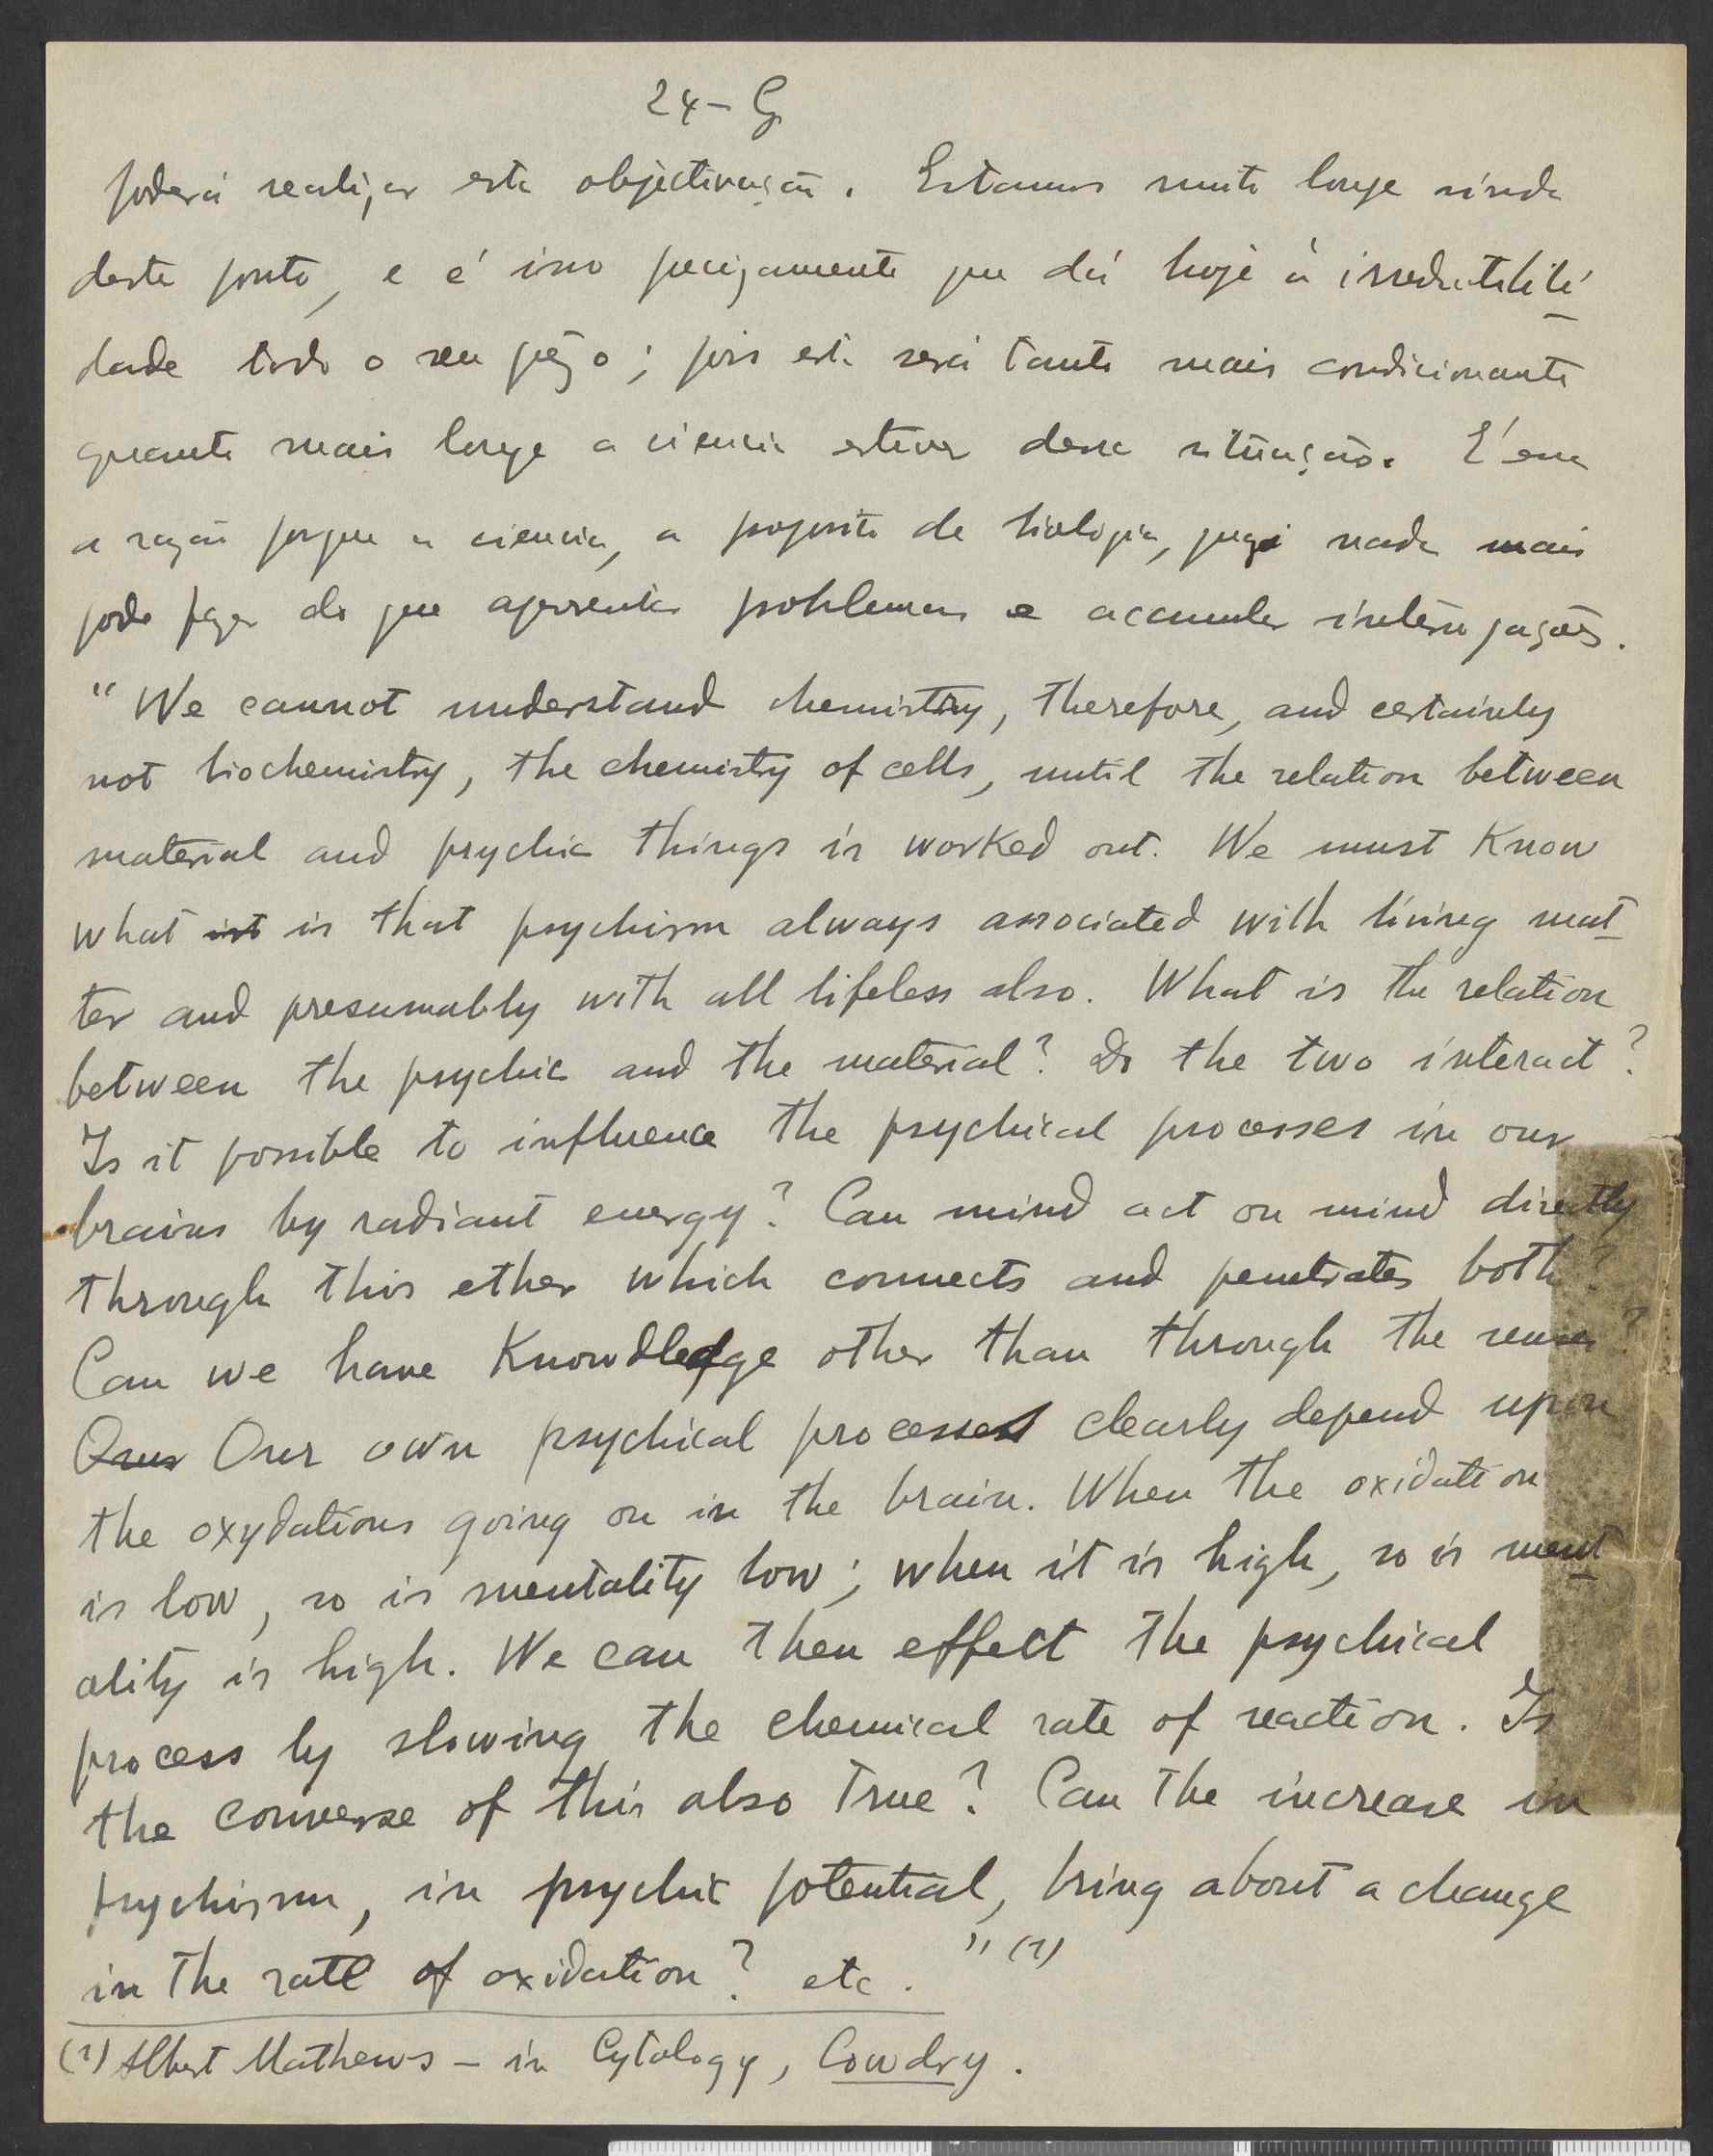 24 - G
poderá realizar esta objectivação. Estamos muito longe ainda
deste ponto, e é isso precizamente que dá hoje á irredutibili
dade todo o seu pêzo; pois esta será tanto mais condicionante
quanto mais longe a ciencia estiver dessa situação. É essa
a razão porque a ciencia, a proposito de biologia, nada mais
pode fazer do que apresentar problemas e accumular interrogações.
" We cannot understand chemistry, therefore, and certainly
not biochemistry, the chemistry of cells, until the relation between
material and psychic things is worked out. We must Know
what ist is that psychism always associated with living mat
ter and presumably with all lifeless also. What is the relation
between the psychic and the material? Do the two interact?
Is it possible to influence the psychical processes in our
brains by radiant energy? Can mind act on mind directly
through this ether which connects and penetrates both?
Can we have Knowdledge other than through the senses?
Our Our own psychical processes clearly depend upon
the oxydations going on in the brain. When the oxidation
is low, so is mentality low; when it is high, so is ment
ality is high. We can then effect the psychical
process by slowing the chemical rate of reaction. Is
the converse of this also true? Can the increase in
psychism, in psychic potential, bring about a change
in the rate of oxidation? etc. " (1)
(1) Albert Mathews - in Cytology, Cowdry.